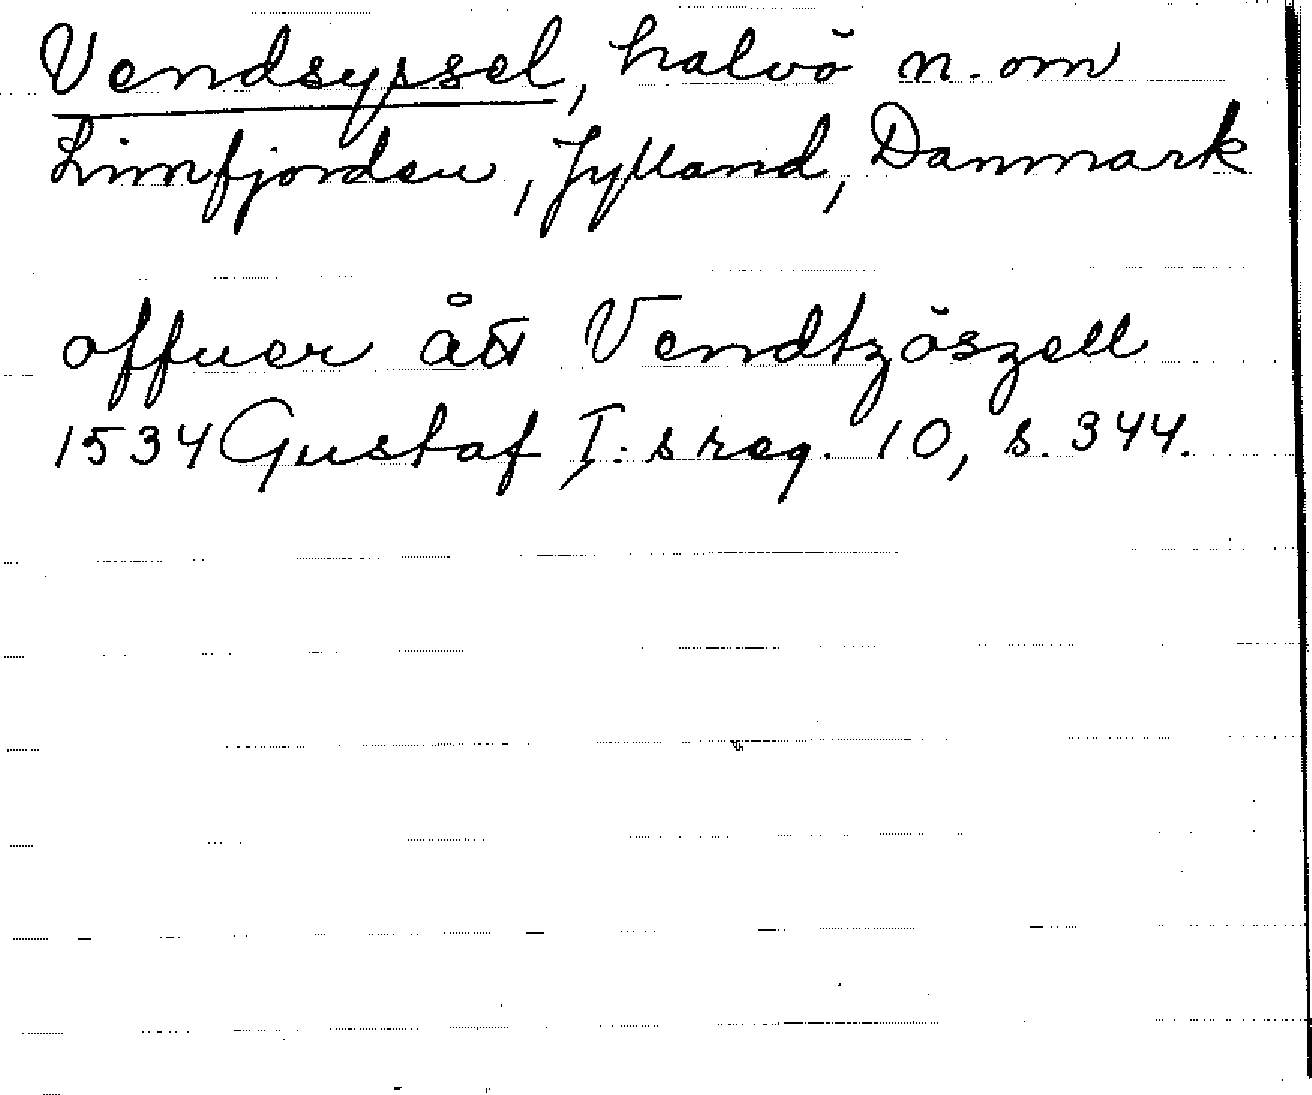 Vendsyssel, halvö n. om
Limfjorden, Jylland, Danmark
offuer ått Vendtzöszell
1534 Gustaf I:s reg. 10, s. 344.